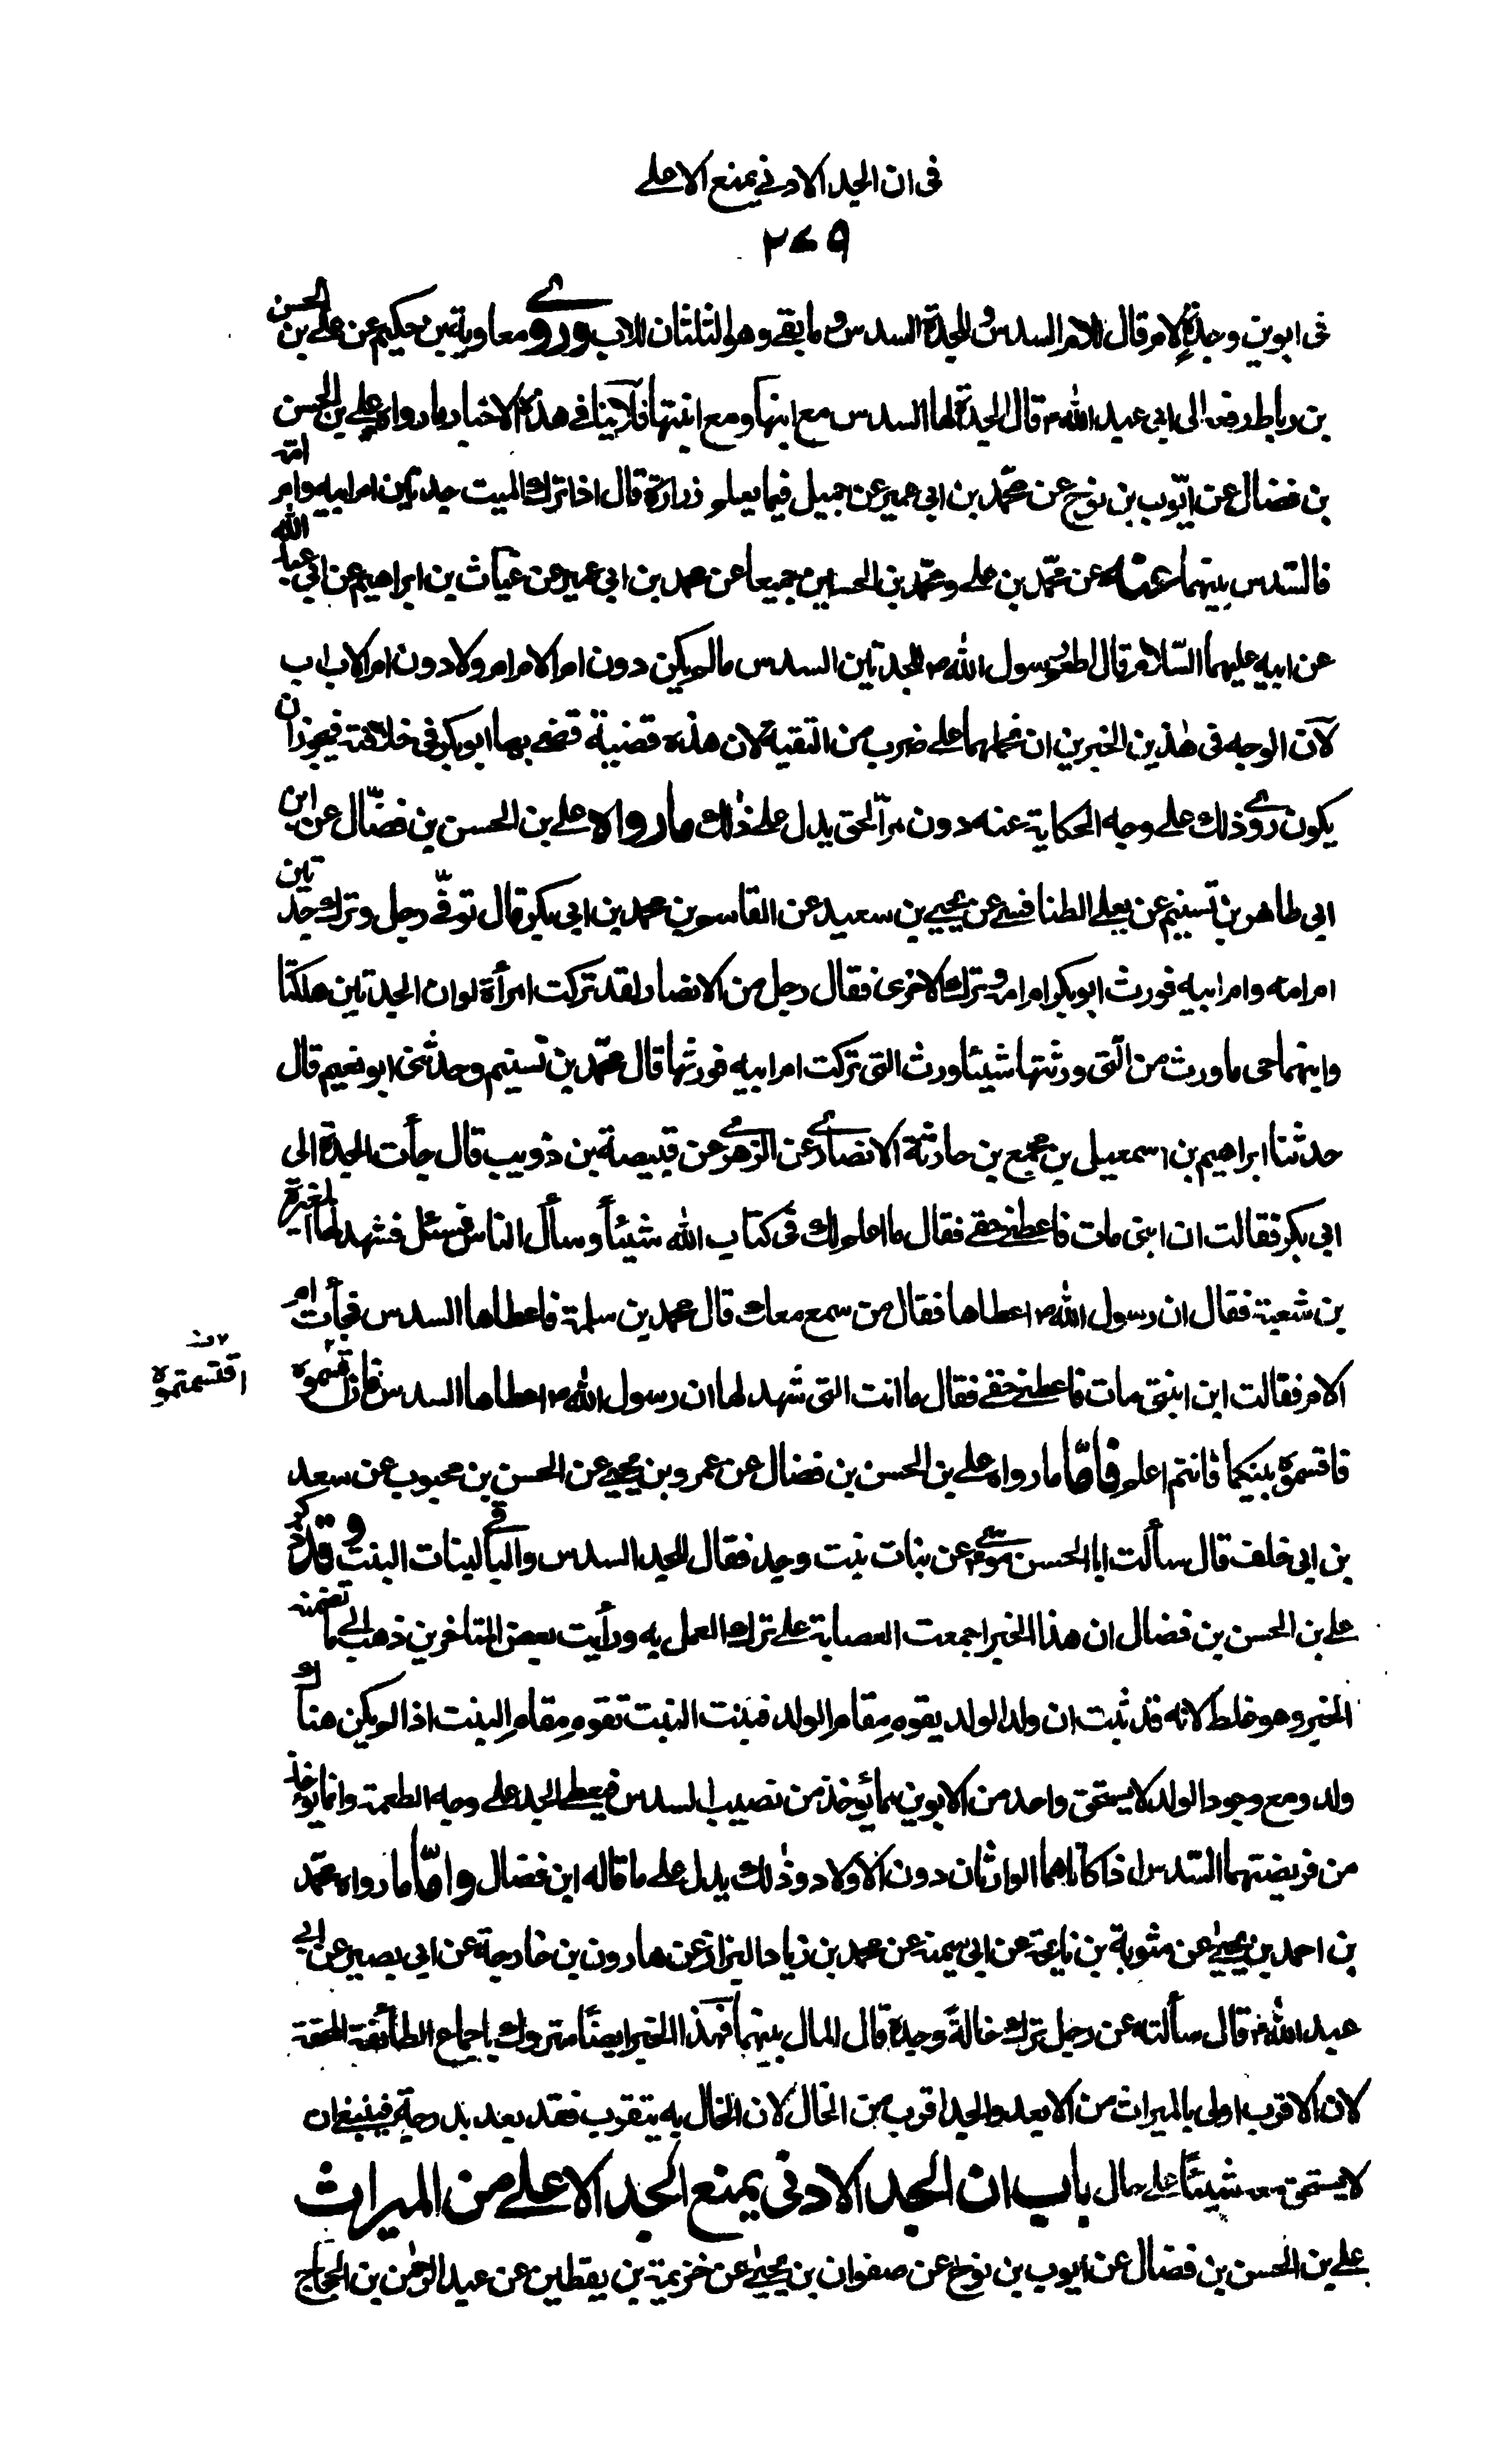 فى ان الجد الادنى يمنع الاعلى
٢٧٩
فى ابوين وجدة لام قال للام السدس وللجدة السدس وما بقى وهو الثلثان للاب وروى معاوية بن حكيم عن على بن الحسن
بن رباط رفعه الى ابى عبد الله ع قال الجدة لها السدس مع ابنها ومع ابنتها فلاينافى هذه الاخبار ما رواه على بن الحسن
بن فضال عن ايّوب بن نوح عن محمّد بن ابى عمير عن جميل فيما يعلم زرارة قال اذا ترك الميت جدتين ام ابيه وام امه
فالسّدس بينهما عنه عن محمّد بن على ومحمّد بن الحسين جميعا عن محمد بن ابى عمير عن غياث بن ابراهيم عن ابى عبد الله
عن ابيه عليهما السّلام قال اطعم رسول الله ص الجدتين السدس ما لم يكن دون ام الام ام ولا دون ام الاب اب
لآن الوجه فى هذين الخبرين ان نحملهما على ضرب من التقية لان هذه قضية قضى بها ابو بكر فى خلافته فيجوز ان
يكون روى ذلك على وجه الحكاية عنه دون مرّ الحق يدل على ذلك ما رواه على بن الحسن بن فضّال عن ابن
ابى طاهر بن تسنيم عن يعلى الطنافسى عن يحيى بن سعيد عن القاسم بن محمد بن ابى بكر قال توفّى رجل وترك جدتين
ام امه وام ابيه فورث ابو بكر ام امه وترك الاخرى فقال رجل من الانصار لقد تركت امرأة لو ان الجدتين هلكتا
وابنهما حى ما ورث من الّتى ورثتها شيئا وورث التى تركت ام ابيه فورثها قال محمّد بن تسنيم وحدثنى ابو نعيم قال
حدثنا ابراهيم بن اسمعيل بن مجمع بن حارثة الانصارى عن الزهرى عن قبيصة بن ذويب قال جأت الجدة الى
ابى بكر فقالت ان ابنى مات فاعطنى حقى فقال ما اعلم لك فى كتاب الله شيئاً وسأل الناس فسئل فشهد لها المغيرة
بن شعبة فقال ان رسول الله ص اعطاها فقال من سمع معك قال محمد بن سلمة فاعطاها السدس فجأت ام
الام فقالت ابن ابنتى مات فاعطنى حقى فقال ما انت التى شهد لها ان رسول الله ص اعطاها السدس فان اقتسموه
اقتسمتموه
فاقسموه بينكما فانتم اعلم فامّا ما رواه على بن الحسن بن فضال عن عمرو بن يحيى عن الحسن بن محبوب عن سعد
بن ابى خلف قال سألت ابا الحسن موسى ع عن بنات بنت وجد فقال للجد السدس والباقى لبنات البنت وقد ذكر
على بن الحسن بن فضال ان هذا الخبر اجمعت العصابة على ترك العمل به ورأيت بعض المتاخرين ذهب الى ما تضمنه
الخبر وهو غلط لانه قد ثبت ان ولد الولد يقوم مقام الولد فبنت البنت تقوم مقام البنت اذا لم يكن هناك
ولد ومع وجود الولد لا يستحق واحد من الابوين ما يؤخذ من نصيب السدس فيعطى الجد على وجه الطعمة وانما يؤخذ
من فريضتهما السّدس اذا كانا هما الوارثان دون الاولاد وذلك يدل على ما قاله ابن فضال وامّا ما رواه محمّد
بن احمد بن يحيى عن مثوبة بن نايحة عن ابى سمينة عن محمد بن زياد البزاز عن هارون بن خارجة عن ابى بصير عن ابى
عبد الله ع قال سألته عن رجل ترك خالة وجدة قال المال بينهما فهذا الخبر ايضًا متروك باجماع الطائفة المحقة
لان الاقرب اولى بالميراث من الابعد والجد اقرب من الخال لان الخال به يتقرب فقد بعد بدرجة فينبغى ان
لا يستحق معه شيئًا على حال باب ان الجد الادنى يمنع الجد الاعلى من الميراث
على بن الحسن بن فضال عن ايوب بن نوح عن صفوان بن يحيى عن خزيمة بن يقطين عن عبد الرحمن بن الحجاج